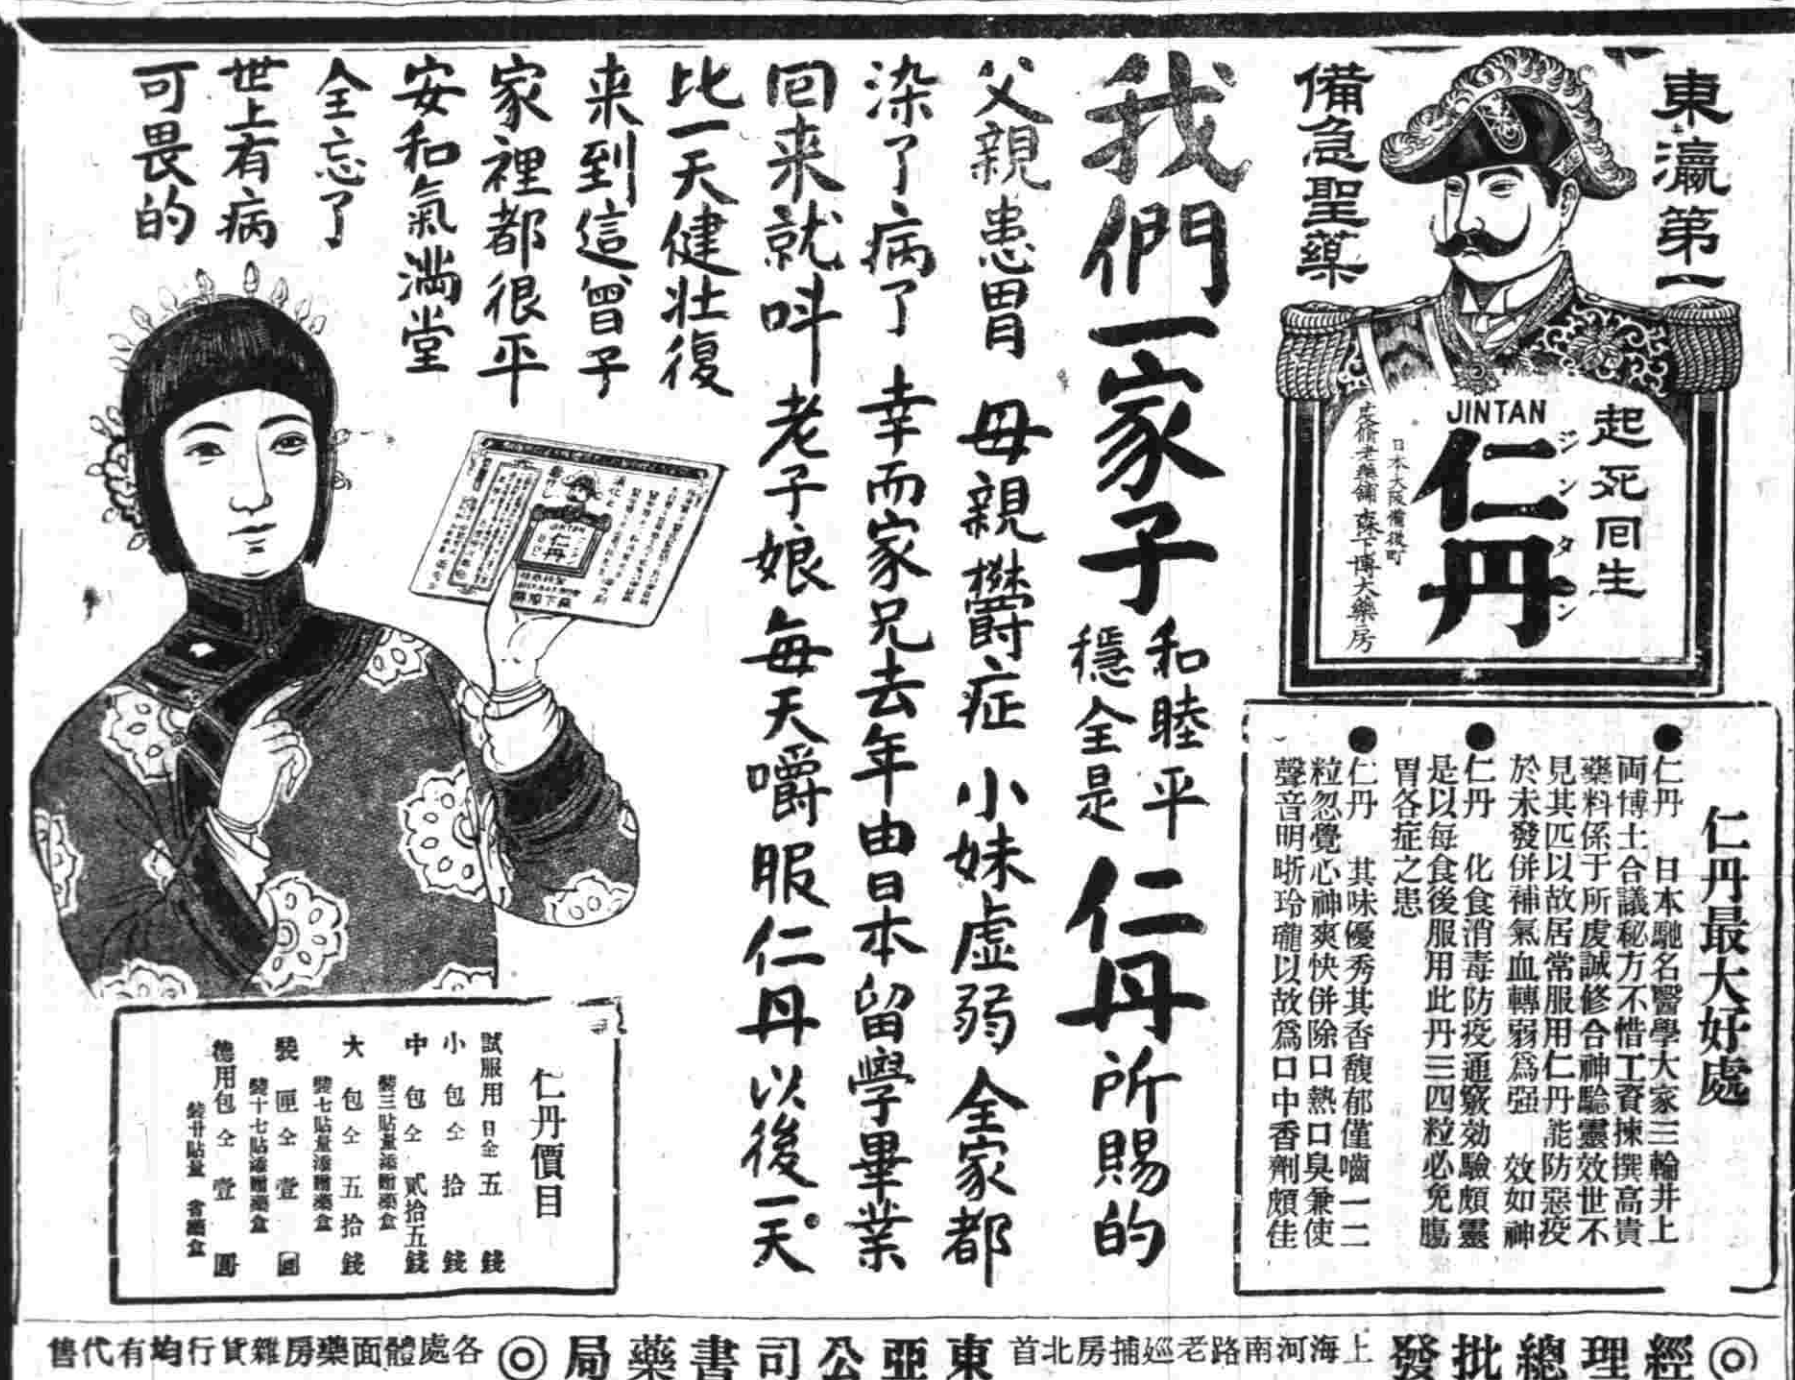 東瀛第一
備急聖藥
起死回生
JINTAN
仁丹
ジンタン
日本大阪備後町
森下博大藥房
仁丹最大好處
●仁丹 日本馳名醫學大家三輪井上
両博士合議秘方不惜工資揀撰高貴
藥料係于所虔誠修合神驗靈效世不
見其匹以故居常服用仁丹能防惡疫
於未發併補氣血轉弱爲强 效如神
●仁丹 化食消毒防疫通竅効驗頗靈
是以每食後服用此丹三四粒必免膓
胃各症之患
●仁丹 其味優秀其香馥郁僅嚙一二
粒忽覺心神爽快併除口熱口臭兼使
聲音明晰玲瓏以故爲口中香劑頗佳
我們一家子
和睦平
穩全是
仁丹所賜的
父親患胃 母親欝症 小妹虛弱 全家都
染了病了 幸而家兄去年由日本留學畢業
回来就呌老子娘每天嚼服仁丹以後一天。
比一天健壯復
来到這曾子
家裡都很平
安和氣満堂
全忘了
世上有病
可畏的
JINTAN
仁丹
仁丹價目
試服用 日金 五 錢
小包 仝 拾 錢
中包 仝 貳拾五錢
裝三貼量添贈藥盒
大包 仝 五拾錢
裝七貼量添贈藥盒
裝匣 仝 壹 圓
裝十七貼添贈藥盒
德用包 仝 壹 圓
裝廿貼量 省藥盒
◎經理總批發
上海河南路老廵捕房北首
東亞公司書藥局
◎各處體面藥房雜貨行均有代售